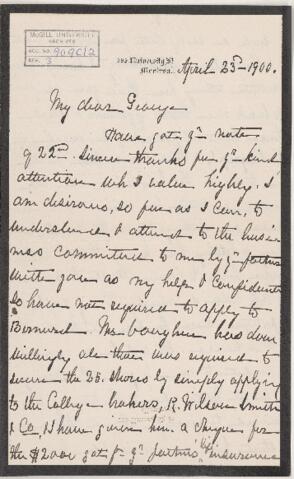 McGILL UNIVERSITY
ARCHIVES
ACC. NO. 909C/2
REF. 3
University St
Montreal.
April 23rd 1900.
My dear George
Have got yr note
of 22nd. Sincere thanks for yr kind
attention wh I value highly. I
am desirous, so far as I can, to
understand & attend to the busi
ness committed to me by yr father
with you as my help & Confidante
so have not required to apply to
Bernard Mr Vaughan has done
willingly all that was required to
secure the 25 shares by simply applying
to the College bakers, R. Wilson Smith
& Co, I have given him a cheque for
the $2000 got fr yr father's life insurance